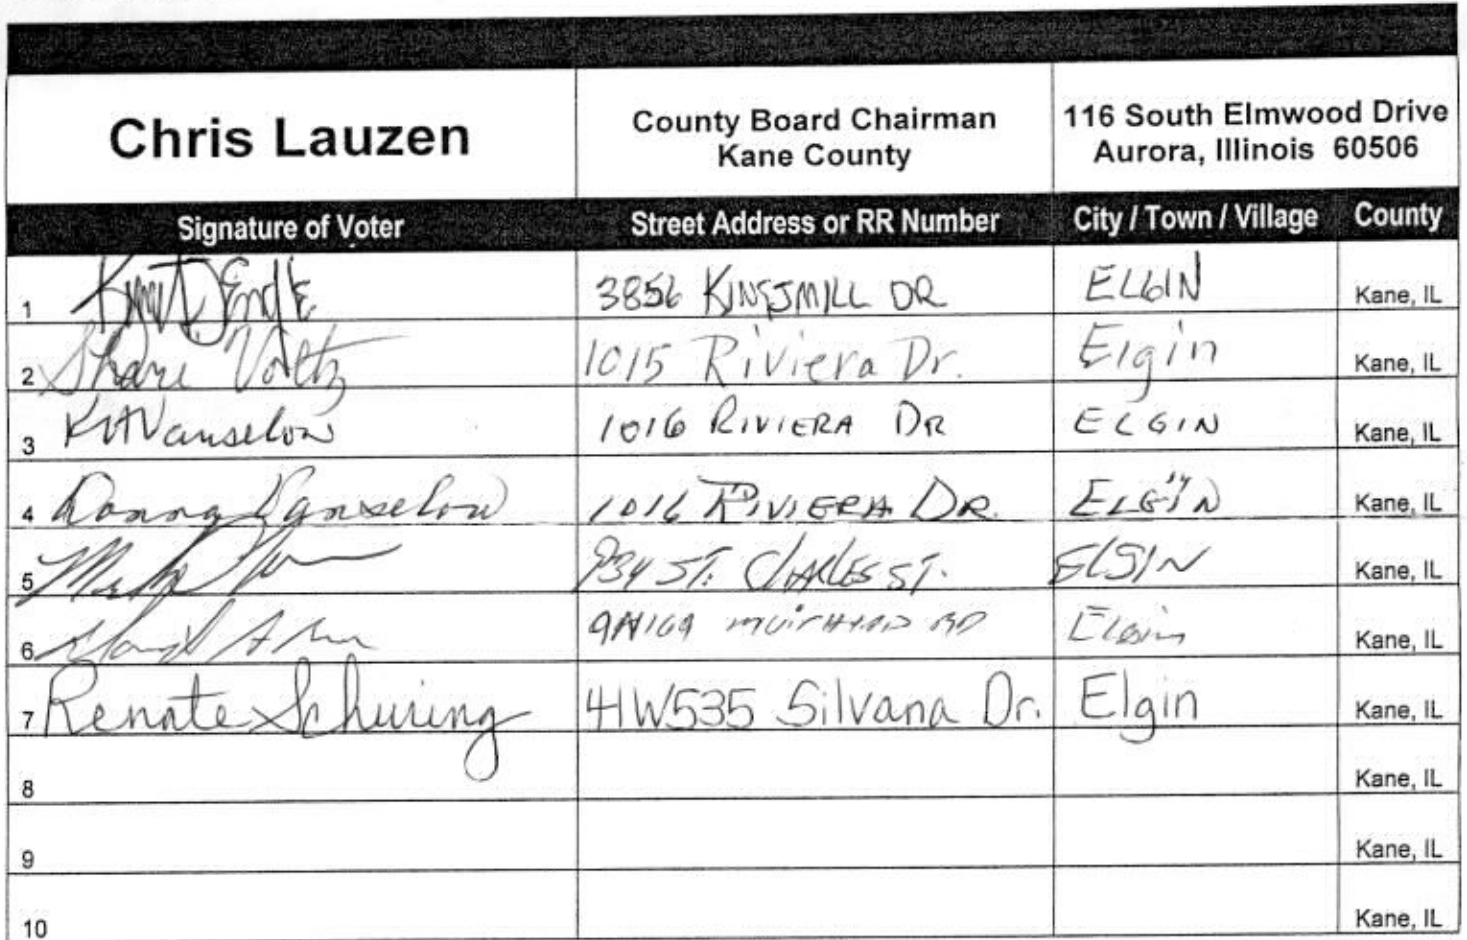 Chris Lauzen County Board Chairman 116 South Elmwood Drive
Kane County Aurora, Illinois 60506
Signature of Voter Street Address or RR Number City / Town / Village County
1 3856 KINGSMILL DR ELGIN Kane, IL
2 Shari Voltz 1015 Riviera Dr. Elgin Kane, IL
3 Vanselow 1016 RIVIERA DR ELGIN Kane, IL
4 Donna Vanselow 1016 RIVIERA DR. ELGIN Kane, IL
5 934 ST. CHARLES ST. ELGIN Kane, IL
6 RD Elgin Kane, IL
7 Renate Schuring 41W535 Silvana Dr. Elgin Kane, IL
8 Kane, IL
9 Kane, IL
10 Kane, IL